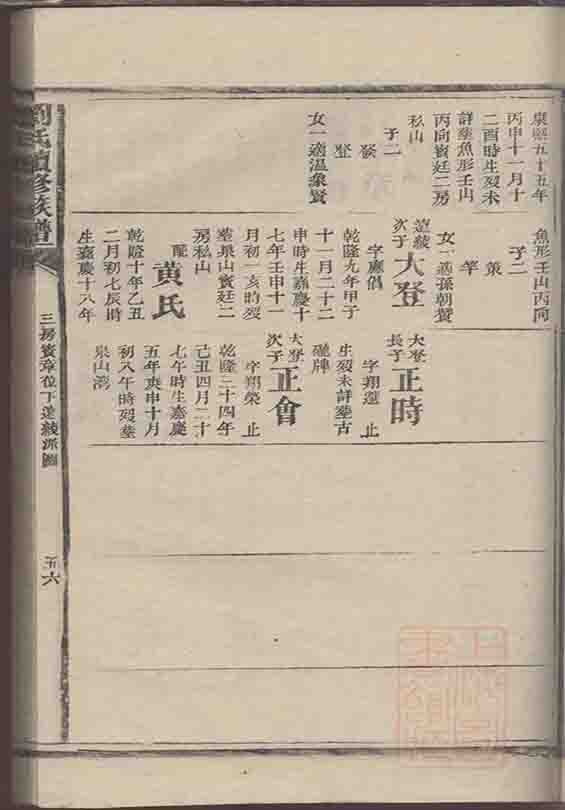 康熙五十五年
丙申十一月十
二酉時生歿未
詳塟魚形壬山
丙向賓廷二房
私山
子二
發
登
女一適溫象賢
魚形壬山丙向
子二
策
竿
女一適孫朝賢
蓮綾
次子
大登
字應倡
乾隆九年甲子
十一月二十二
申時生嘉慶十
七年壬申十一
月初一亥時歿
塟泉山賓廷二
房私山
配
黄氏
乾隆十年乙丑
二月初七辰時
生嘉慶十八年
大登
長子
正時
字翔選 止
生歿未詳塟古
礶牌
大登
次子
正會
字翔榮 止
乾隆三十四年
己丑四月二十
七午時生嘉慶
五年庚申十月
初八午時歿塟
泉山灣
劉氏續修族譜
三房賓章位下蓮綾派圖
五六